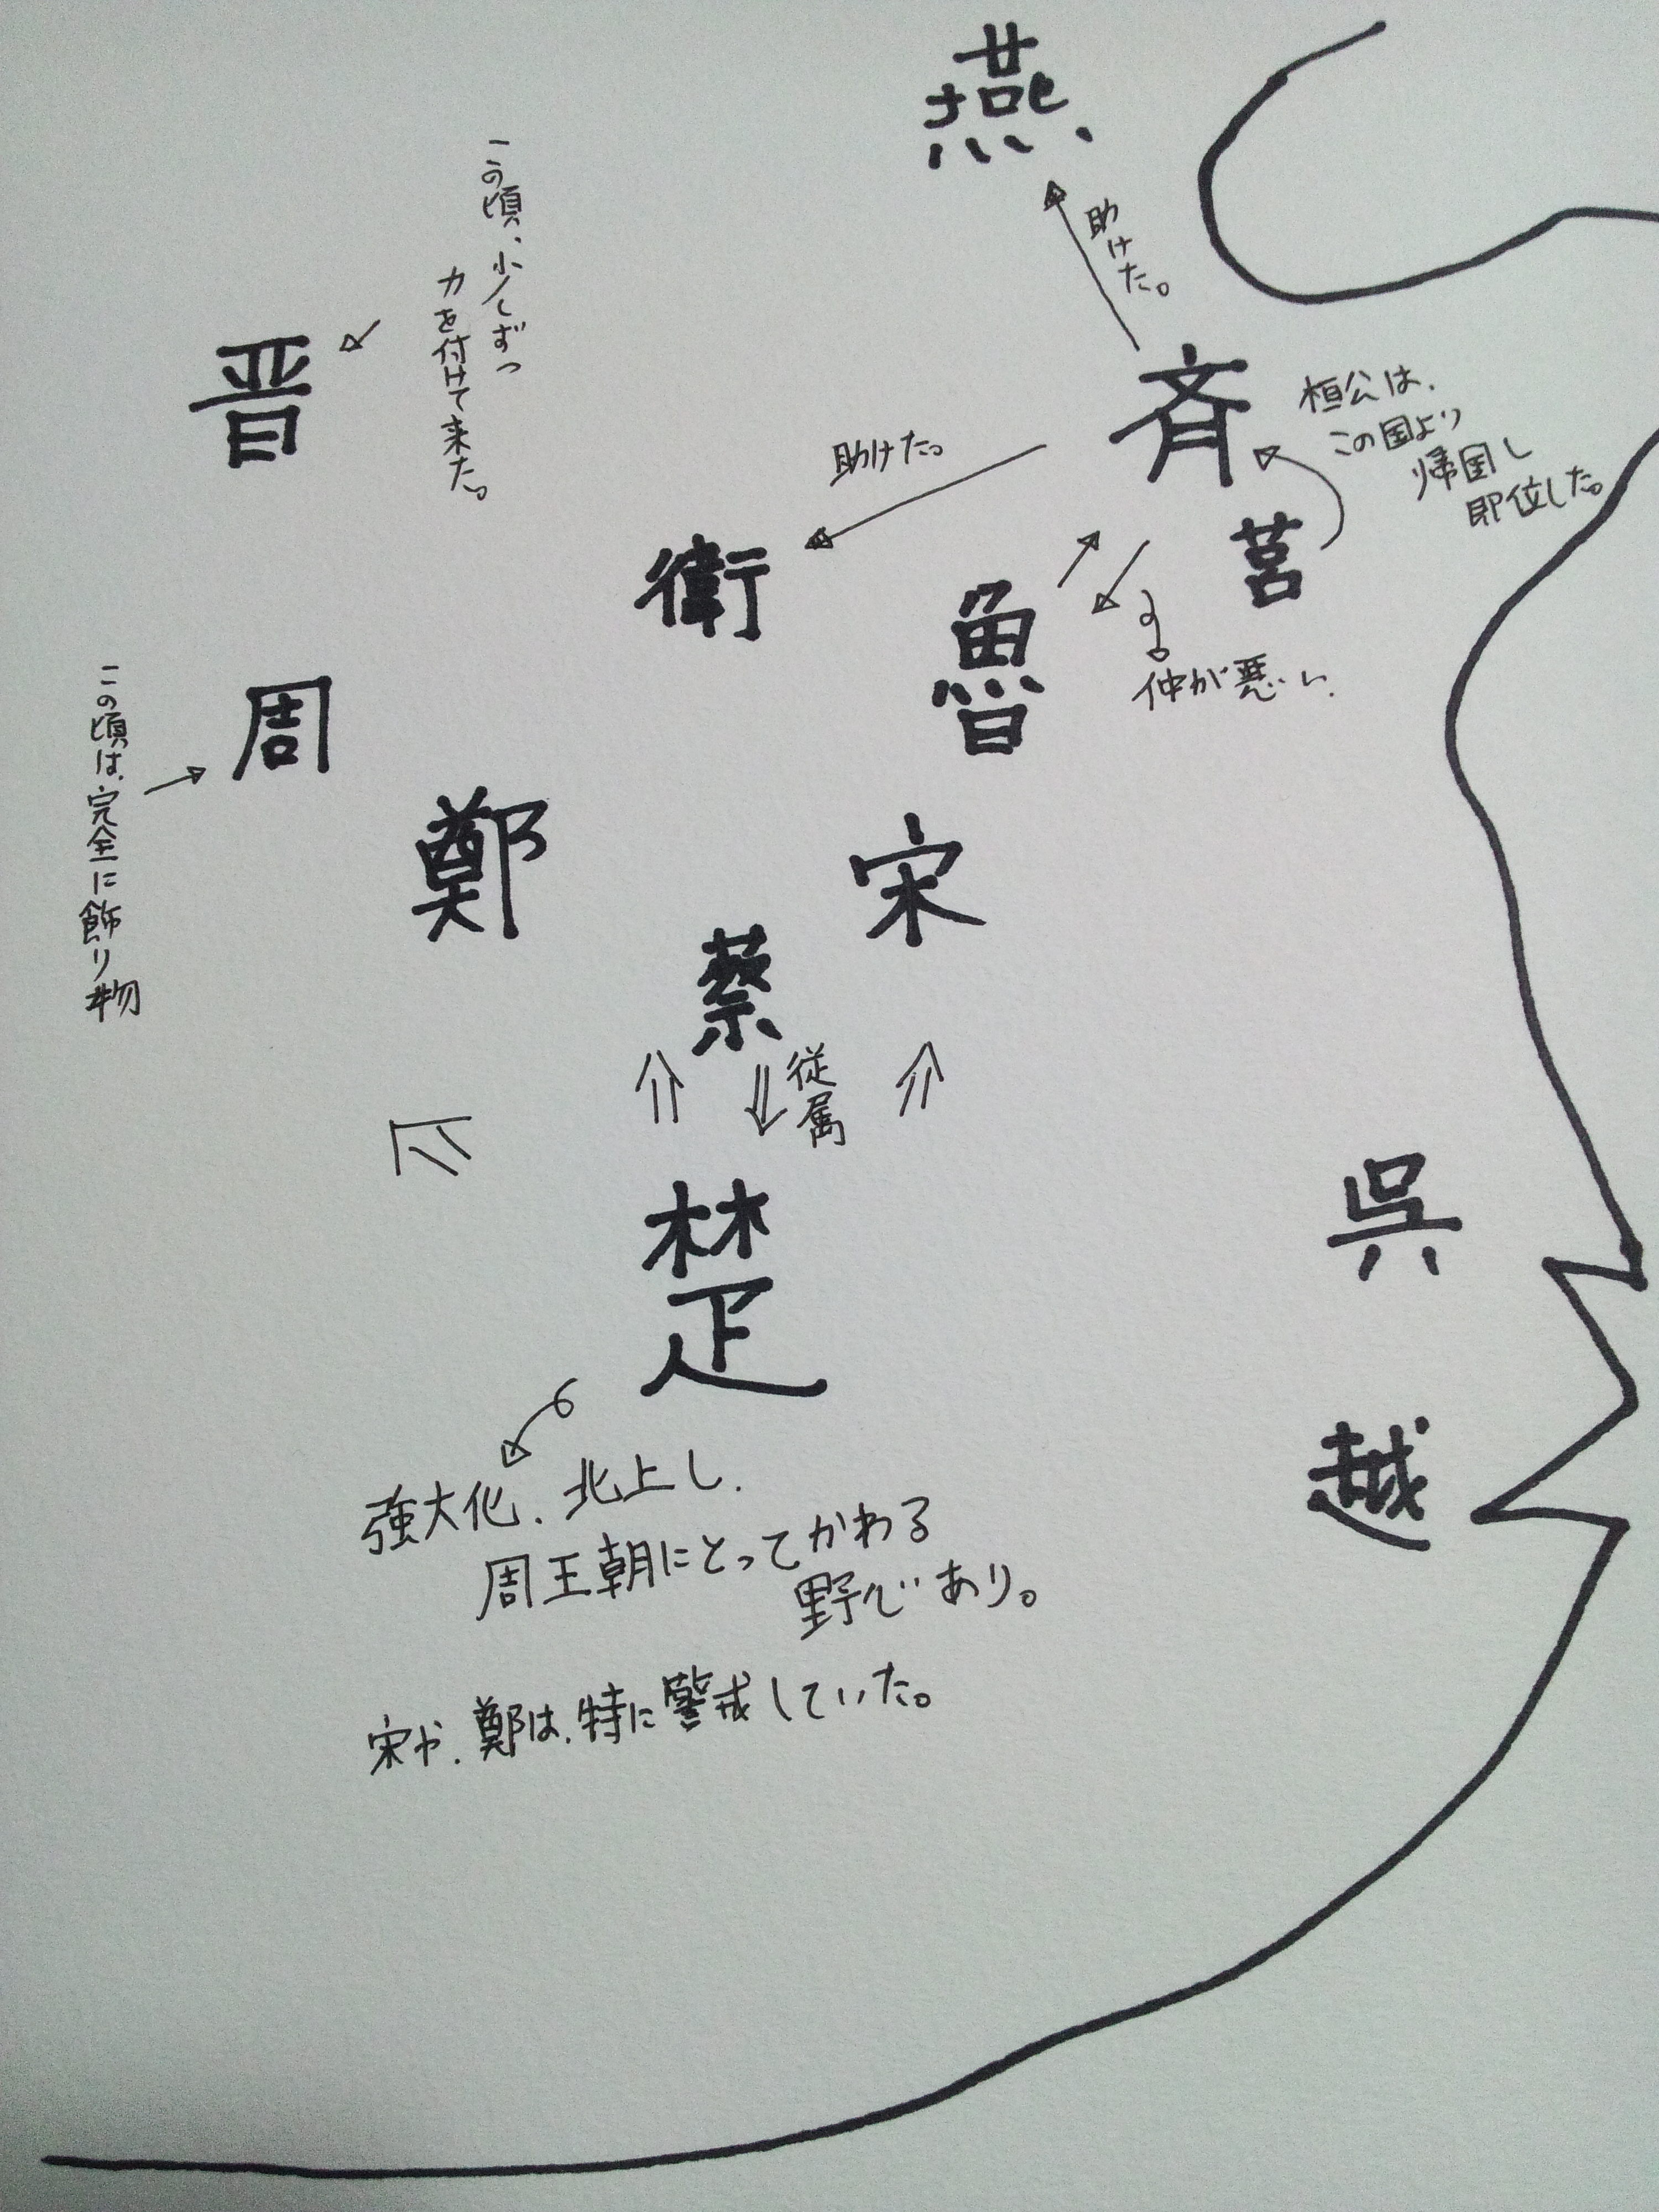 燕
助けた。
この頃、少しずつ
力を付けて来た。
晋
斉
桓公は、
この国より
帰国し
即位した。
助けた。
莒
衛
魯
仲が悪い、
周
この頃は、完全に飾り物
鄭
宋
蔡
従属
楚
呉
越
強大化、北上し、
周王朝にとってかわる
野心あり。
宋や、鄭は、特に警戒していた。